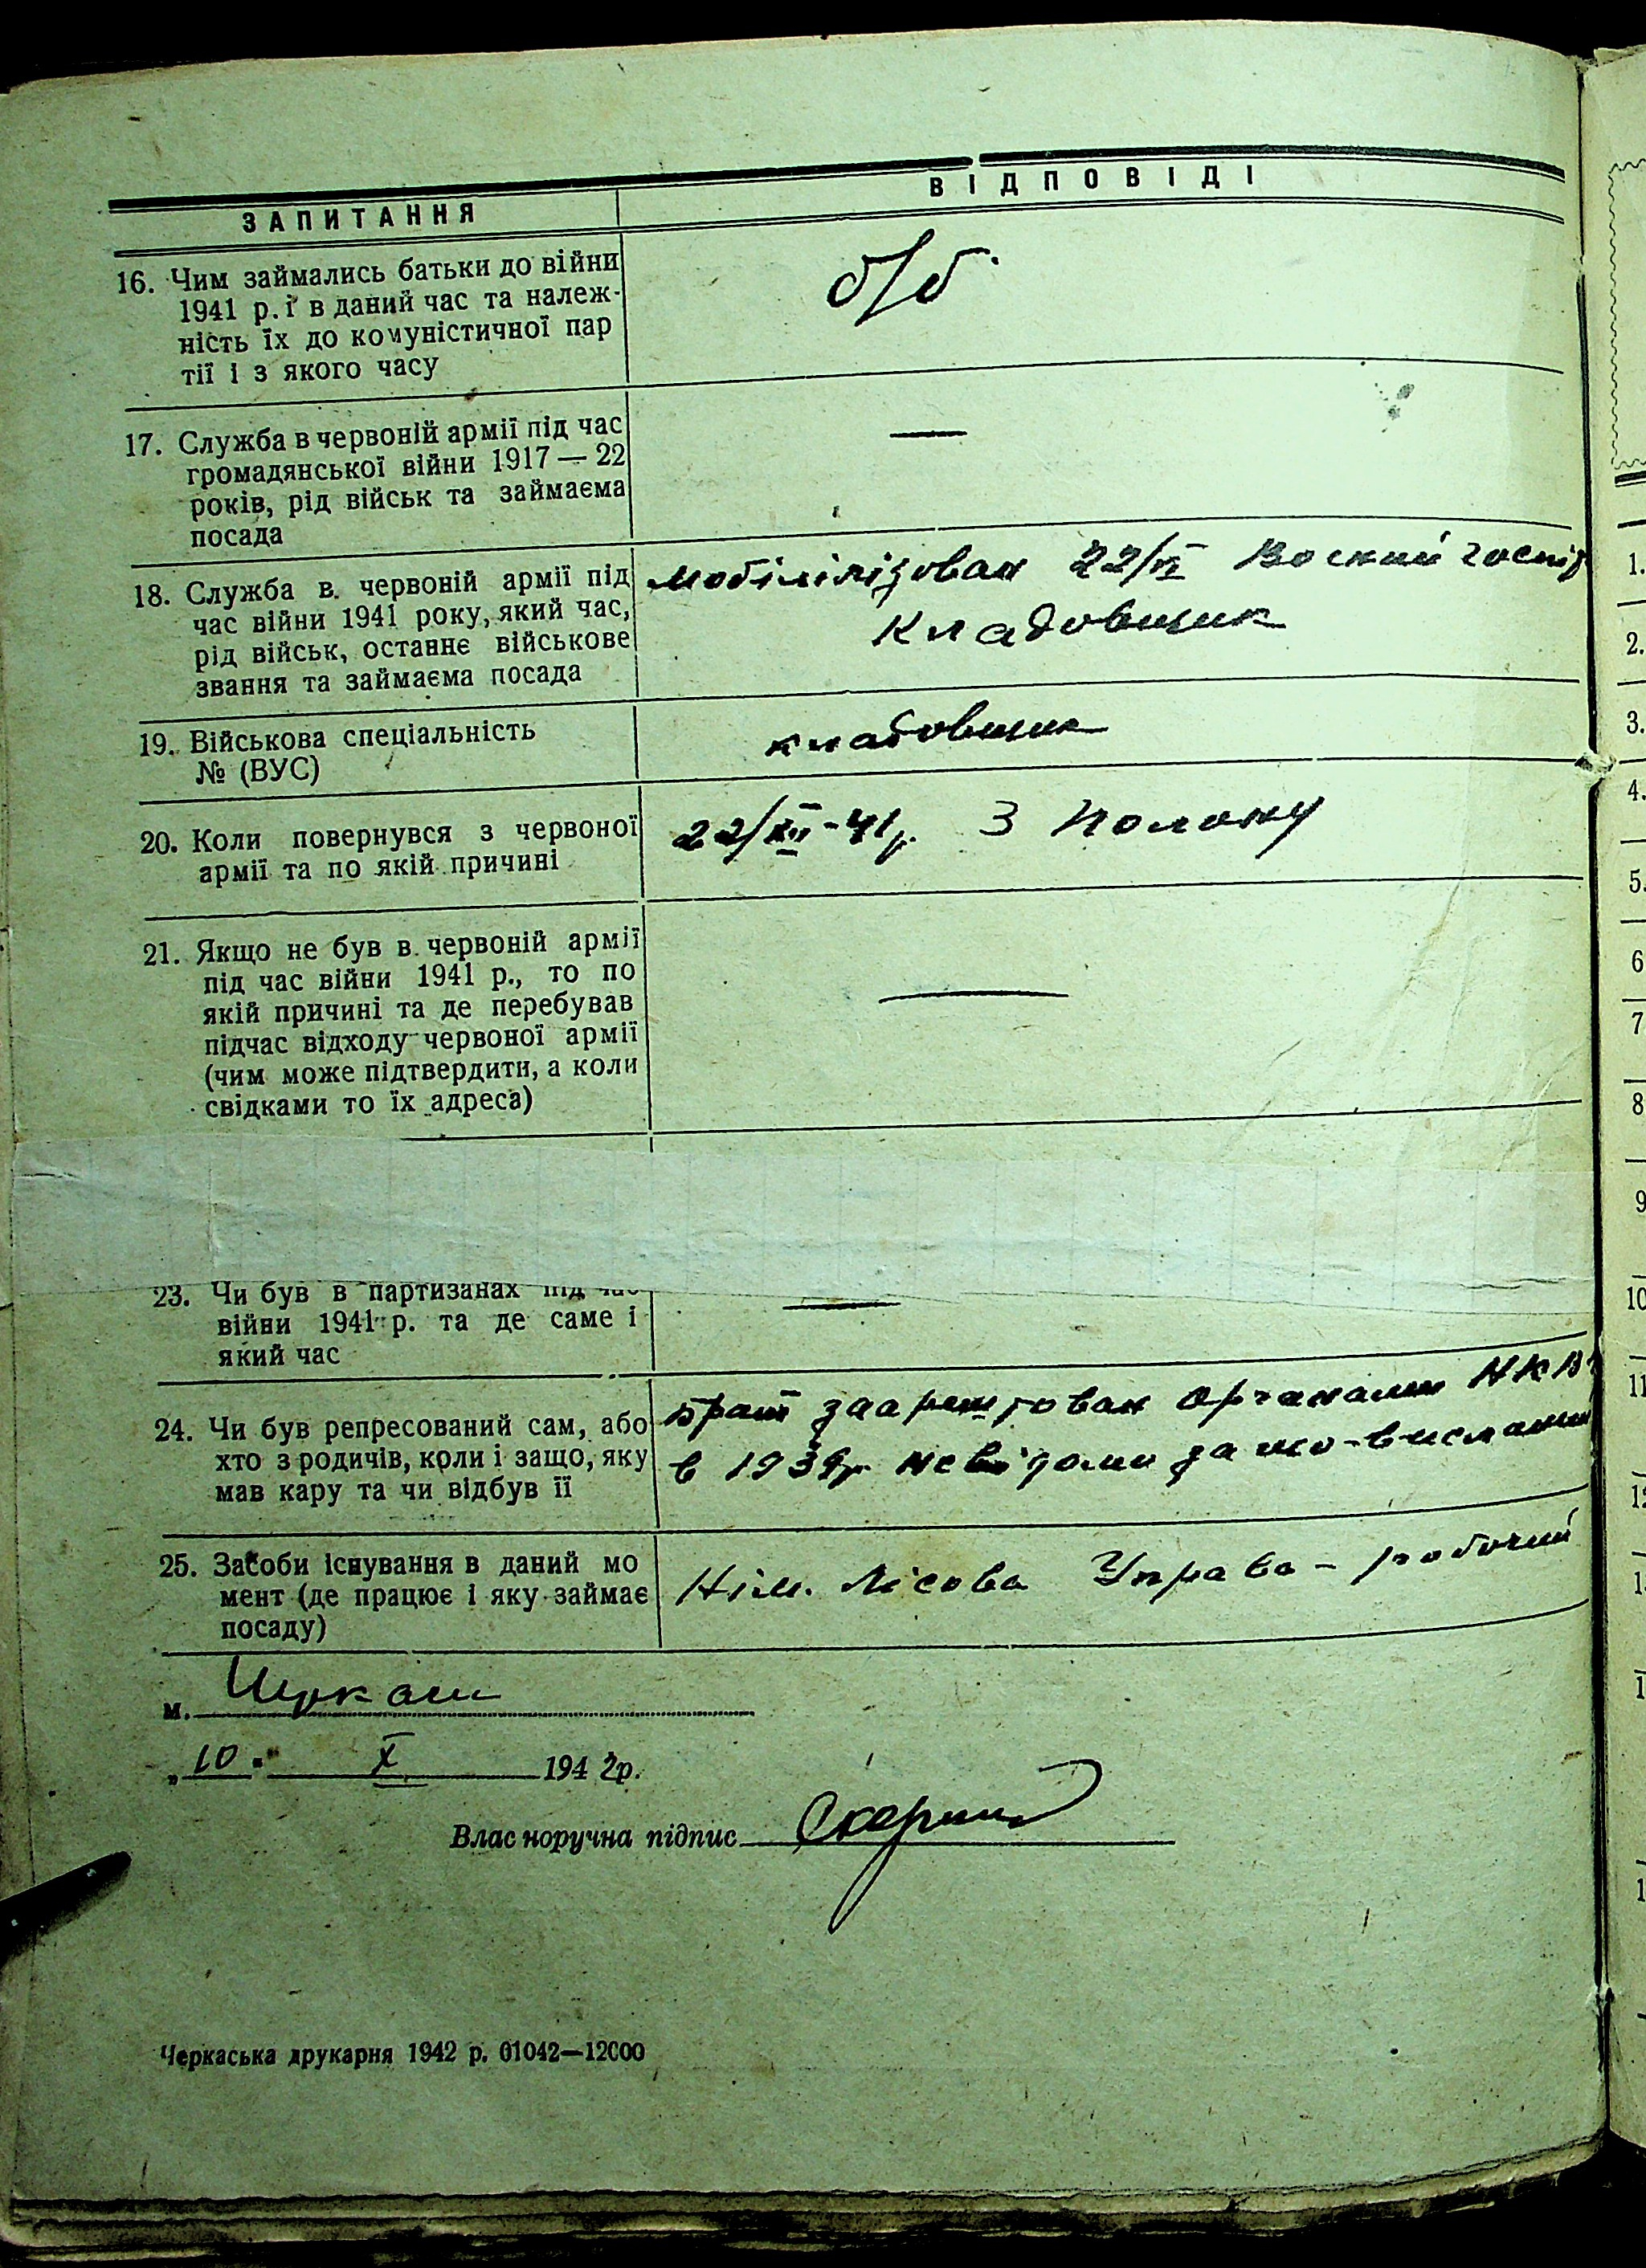 ЗАПИТАННЯ
ВІДПОВІДІ
16. Чим займались батьки до війни
1941 р. і в даний час та належ-
ність їх до комуністичної пар
тії і з якого часу
б/б.
17. Служба в червоній армії під час
громадянської війни 1917 — 22
років, рід військ та займаєма
посада
—
18. Служба в червоній армії під
час війни 1941 року, який час,
рід військ, останнє військове
звання та займаєма посада
мобілілізован 22/VI
Кладовщик
19. Військова спеціальність
№ (ВУС)
кладовщик
20. Коли повернувся з червоної
армії та по якій причині
22/XII-41р. З Полону
21. Якщо не був в червоній армії
під час війни 1941 р., то по
якій причині та де перебував
підчас відходу червоної армії
(чим може підтвердити, а коли
свідками то їх адреса)
—
23. Чи був в партизанах під час
війни 1941 р. та де саме і
який час
—
24. Чи був репресований сам, або
хто з родичів, коли і защо, яку
мав кару та чи відбув її
брат заарештован Органами НКВ
в 1939р. за що-
25. Засоби існування в даний мо
мент (де працює і яку займає
посаду)
Нім. Лісова Управа – робочий
м. Черкаси
„10" X 1942р.
Власноручна підпис
Черкаська друкарня 1942 р. 01042—12000
1.
2.
3.
4.
5.
6
7
8
9
10
11